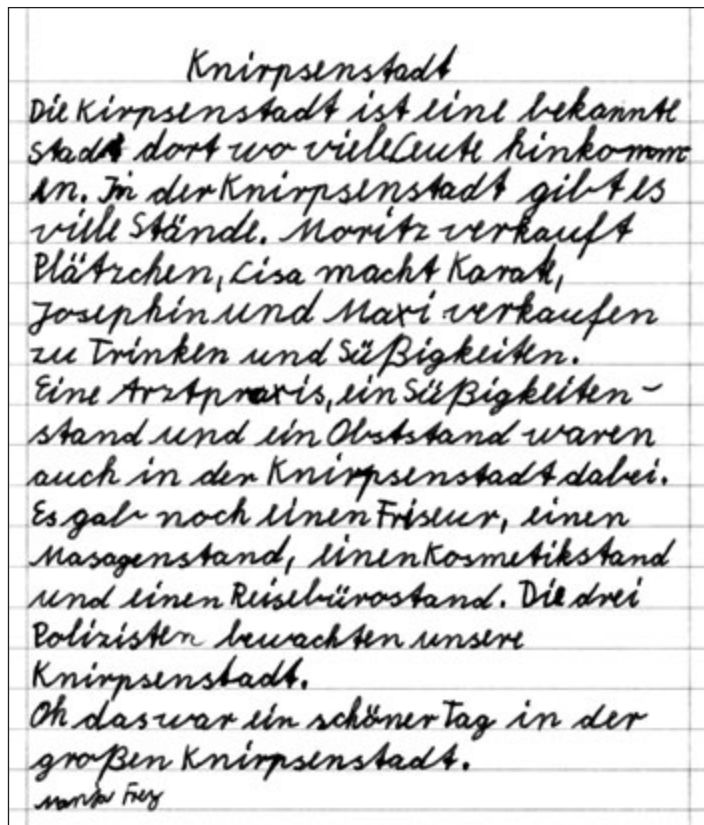 Knirpsenstadt
Die Kirpsenstadt ist eine bekannte
Stadt dort wo viele Leute hinkomm
en. In der Knirpsenstadt gibt es
viele Stände. Moritz verkauft
Plätzchen, Lisa macht Karate,
Josephin und Maxi verkaufen
zu Trinken und Süßigkeiten.
Eine Arztpraxis, ein Süßigkeiten-
stand und ein Obststand waren
auch in der Knirpsenstadt dabei.
Es gab noch einen Friseur, einen
Masagenstand, einen Kosmetikstand
und einen Reisebürostand. Die drei
Polizisten bewachten unsere
Knirpsenstadt.
Oh das war ein schöner Tag in der
großen Knirpsenstadt.
Frey